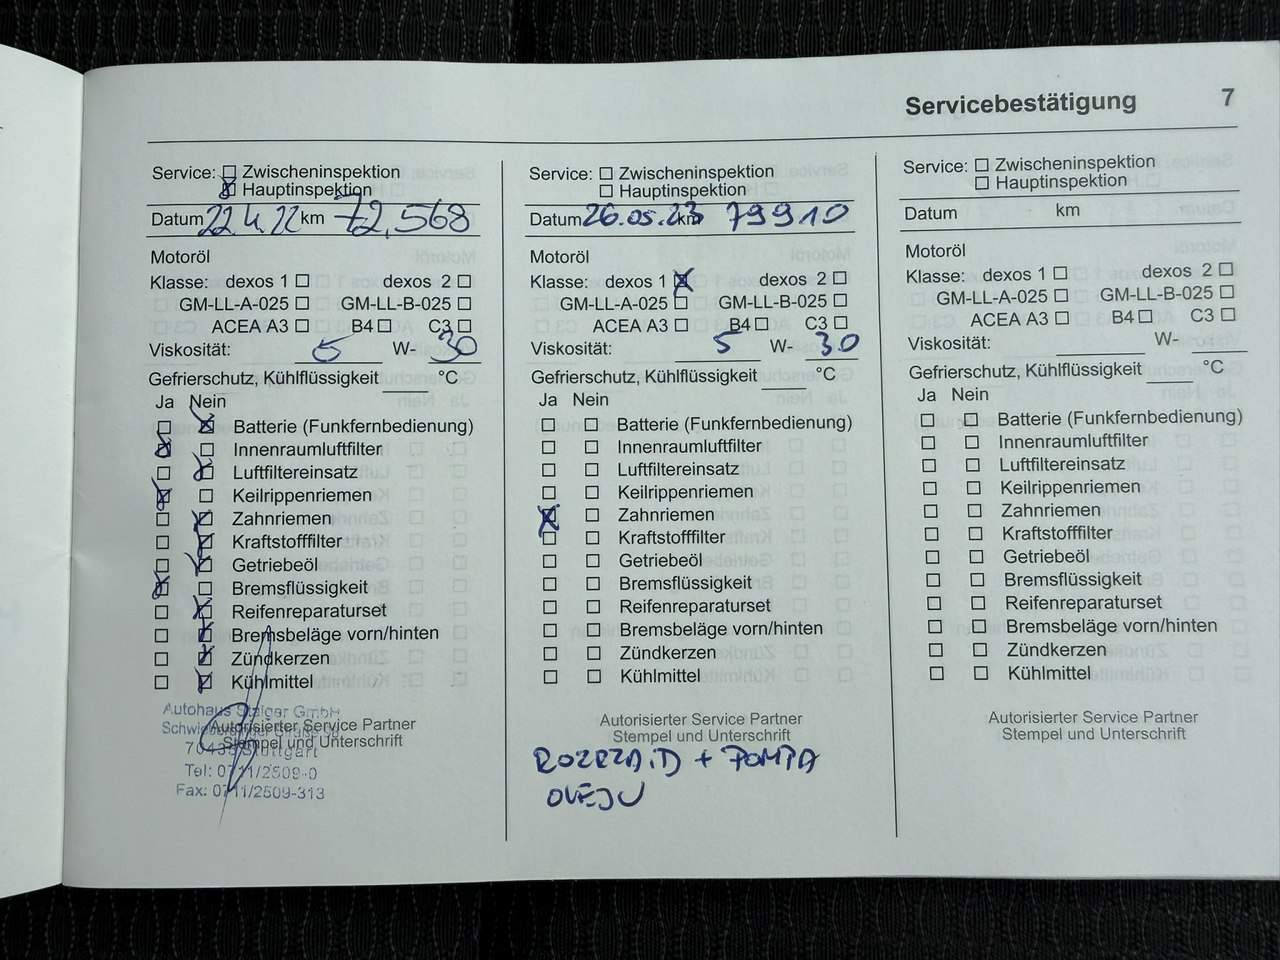 Servicebestätigung 7
Service: Zwischeninspektion
Hauptinspektion
Datum 22.4.22 km 72,568
Motoröl
Klasse: dexos 1 dexos 2
GM-LL-A-025 GM-LL-B-025
ACEA A3 B4 C3
Viskosität: 5 W- 30
Gefrierschutz, Kühlflüssigkeit °C
Ja Nein
Batterie (Funkfernbedienung)
Innenraumluftfilter
Luftfiltereinsatz
Keilrippenriemen
Zahnriemen
Kraftstofffilter
Getriebeöl
Bremsflüssigkeit
Reifenreparaturset
Bremsbeläge vorn/hinten
Zündkerzen
Kühlmittel
Autorisierter Service Partner
Stempel und Unterschrift
Autohaus Staiger GmbH
Stuttgart
Tel: 0711/2509-0
Fax: 0711/2509-313
Service: Zwischeninspektion
Hauptinspektion
Datum 26.05.23 km 79910
Motoröl
Klasse: dexos 1 dexos 2
GM-LL-A-025 GM-LL-B-025
ACEA A3 B4 C3
Viskosität: 5 W- 30
Gefrierschutz, Kühlflüssigkeit °C
Ja Nein
Batterie (Funkfernbedienung)
Innenraumluftfilter
Luftfiltereinsatz
Keilrippenriemen
Zahnriemen
Kraftstofffilter
Getriebeöl
Bremsflüssigkeit
Reifenreparaturset
Bremsbeläge vorn/hinten
Zündkerzen
Kühlmittel
Autorisierter Service Partner
Stempel und Unterschrift
ROZRZĄD + POMPA
OLEJU
Service: Zwischeninspektion
Hauptinspektion
Datum km
Motoröl
Klasse: dexos 1 dexos 2
GM-LL-A-025 GM-LL-B-025
ACEA A3 B4 C3
Viskosität: W-
Gefrierschutz, Kühlflüssigkeit °C
Ja Nein
Batterie (Funkfernbedienung)
Innenraumluftfilter
Luftfiltereinsatz
Keilrippenriemen
Zahnriemen
Kraftstofffilter
Getriebeöl
Bremsflüssigkeit
Reifenreparaturset
Bremsbeläge vorn/hinten
Zündkerzen
Kühlmittel
Autorisierter Service Partner
Stempel und Unterschrift